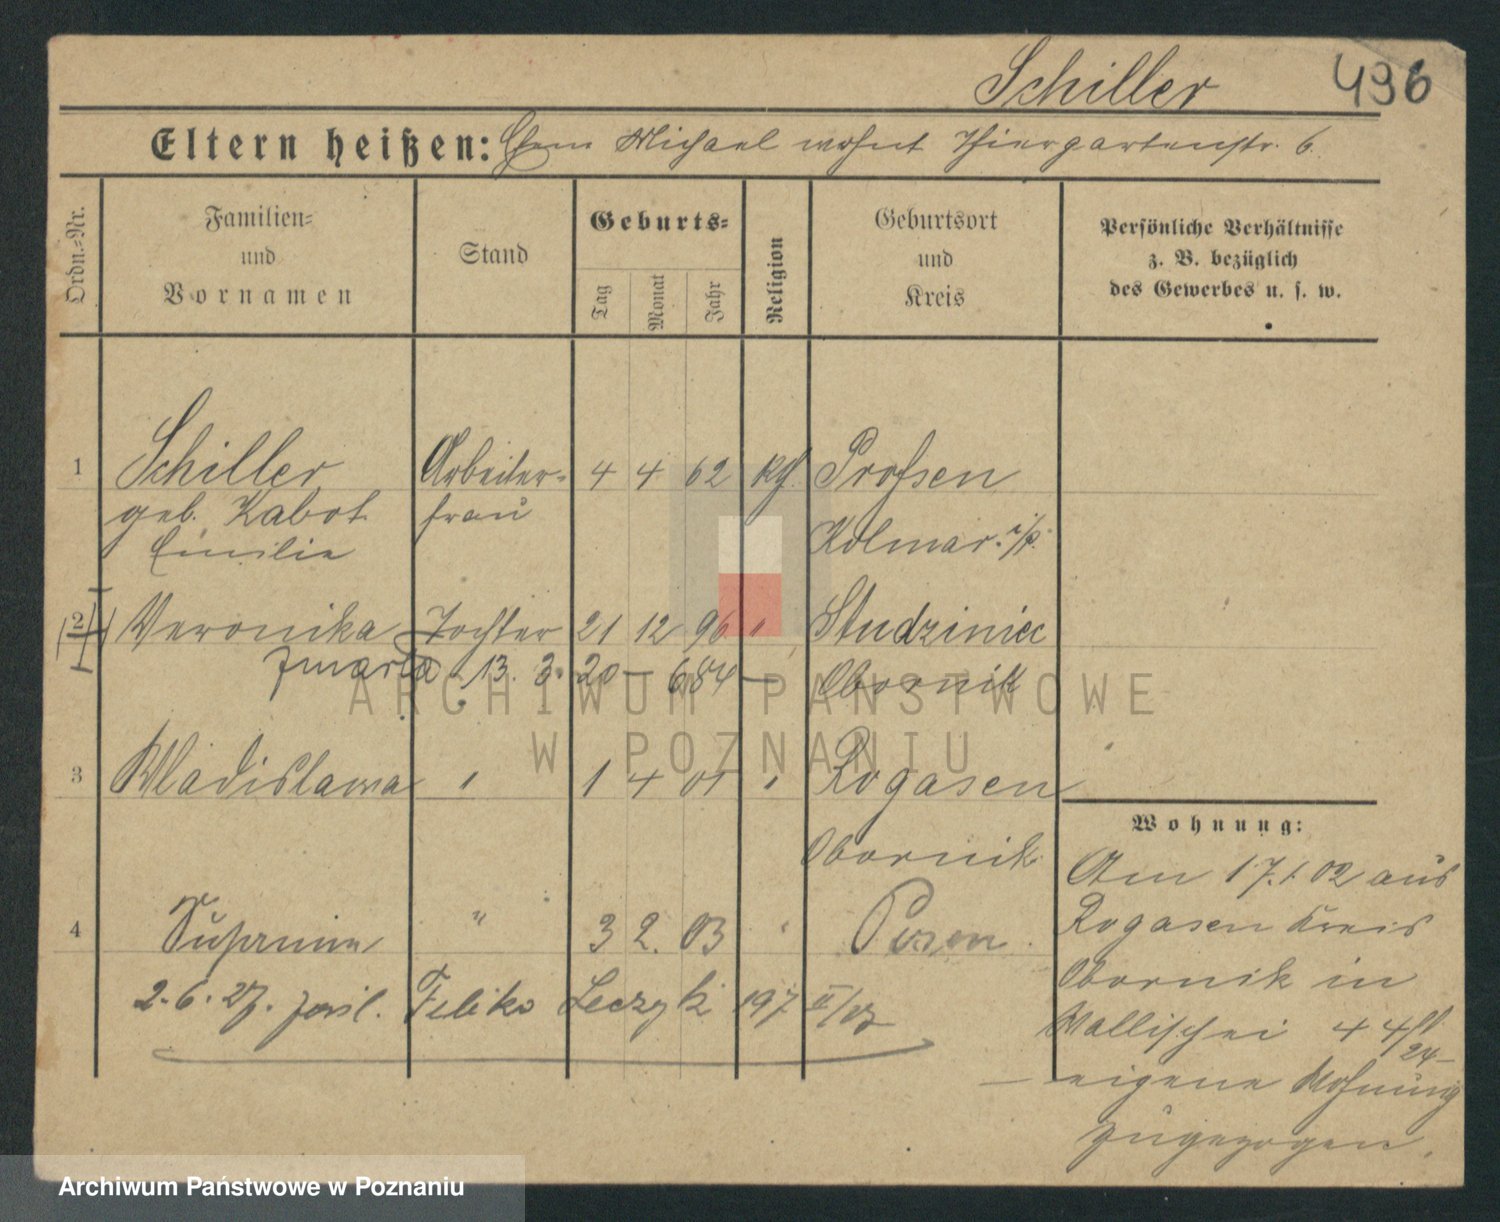 Schiller 496
Eltern heißen: Ehem Michael wohnt Thiergartenstr. 6.
Ordn.-Nr.
Familien-
und
Vornamen
Stand
Geburts-
Tag
Monat
Jahr
Religion
Geburtsort
und
Kreis
Persönliche Verhältnisse
z. B. bezüglich
des Gewerbes u. s. w.
1 Schiller Arbeiter- 4 4 62 kth
geb. Kabot frau
Emilie
Kolmar i/P.
2 Veronika Tochter 21 12 96 " Studziniec
zmarła 13. 3. 20 — 684 — Obornik
3 Wladislawa " 1 4 01 " Rogasen
Obornik
4 " 3 2. 03 " Posen
2. 6. 27. Feliks Leczyk 197 II/27
Wohnung:
Am 17.1.02 aus
Rogasen Kreis
Obornik in
Wallischei 4
eigene Wohnung
zugezogen.
ARCHIWUM PAŃSTWOWE
W POZNANIU
Archiwum Państwowe w Poznaniu